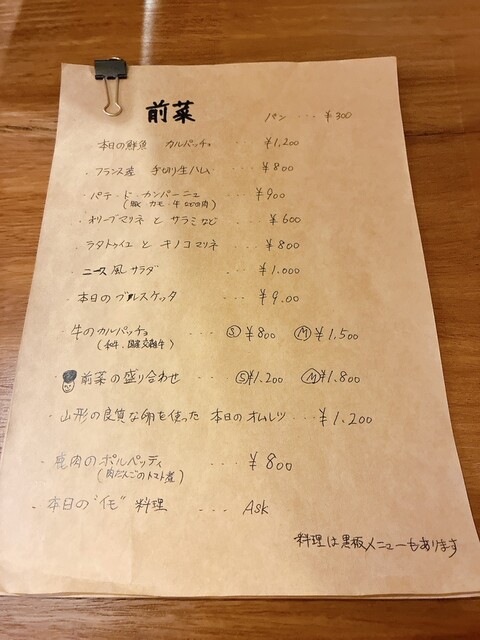 前菜
パン ・・・ ¥300
本日の鮮魚 カルパッチョ ・・・ ¥1,200
・フランス産 手切り生ハム ・・・ ¥800
・パテ・ド・カンパーニュ ・・・ ¥900
・オリーブマリネ と サラミなど ・・・ ¥600
・ラタトゥイユ と キノコマリネ ・・・ ¥800
・ニース風サラダ ・・・ ¥1.000
・本日のブルスケッタ ・・・ ¥9.00
・牛のカルパッチョ ・・・ Ⓢ ¥800 Ⓜ ¥1,500
(和牛、国産交雑牛)
・前菜の盛り合わせ ・・ Ⓢ¥1.200 Ⓜ¥1.800
・山形の良質な卵を使った 本日のオムレツ ・・・ ¥1,200
・鹿肉のポルペッティ ・・・ ¥800
(肉だんごのトマト煮)
・本日の"イモ"料理 ・・・ Ask
料理は黒板メニューもあります